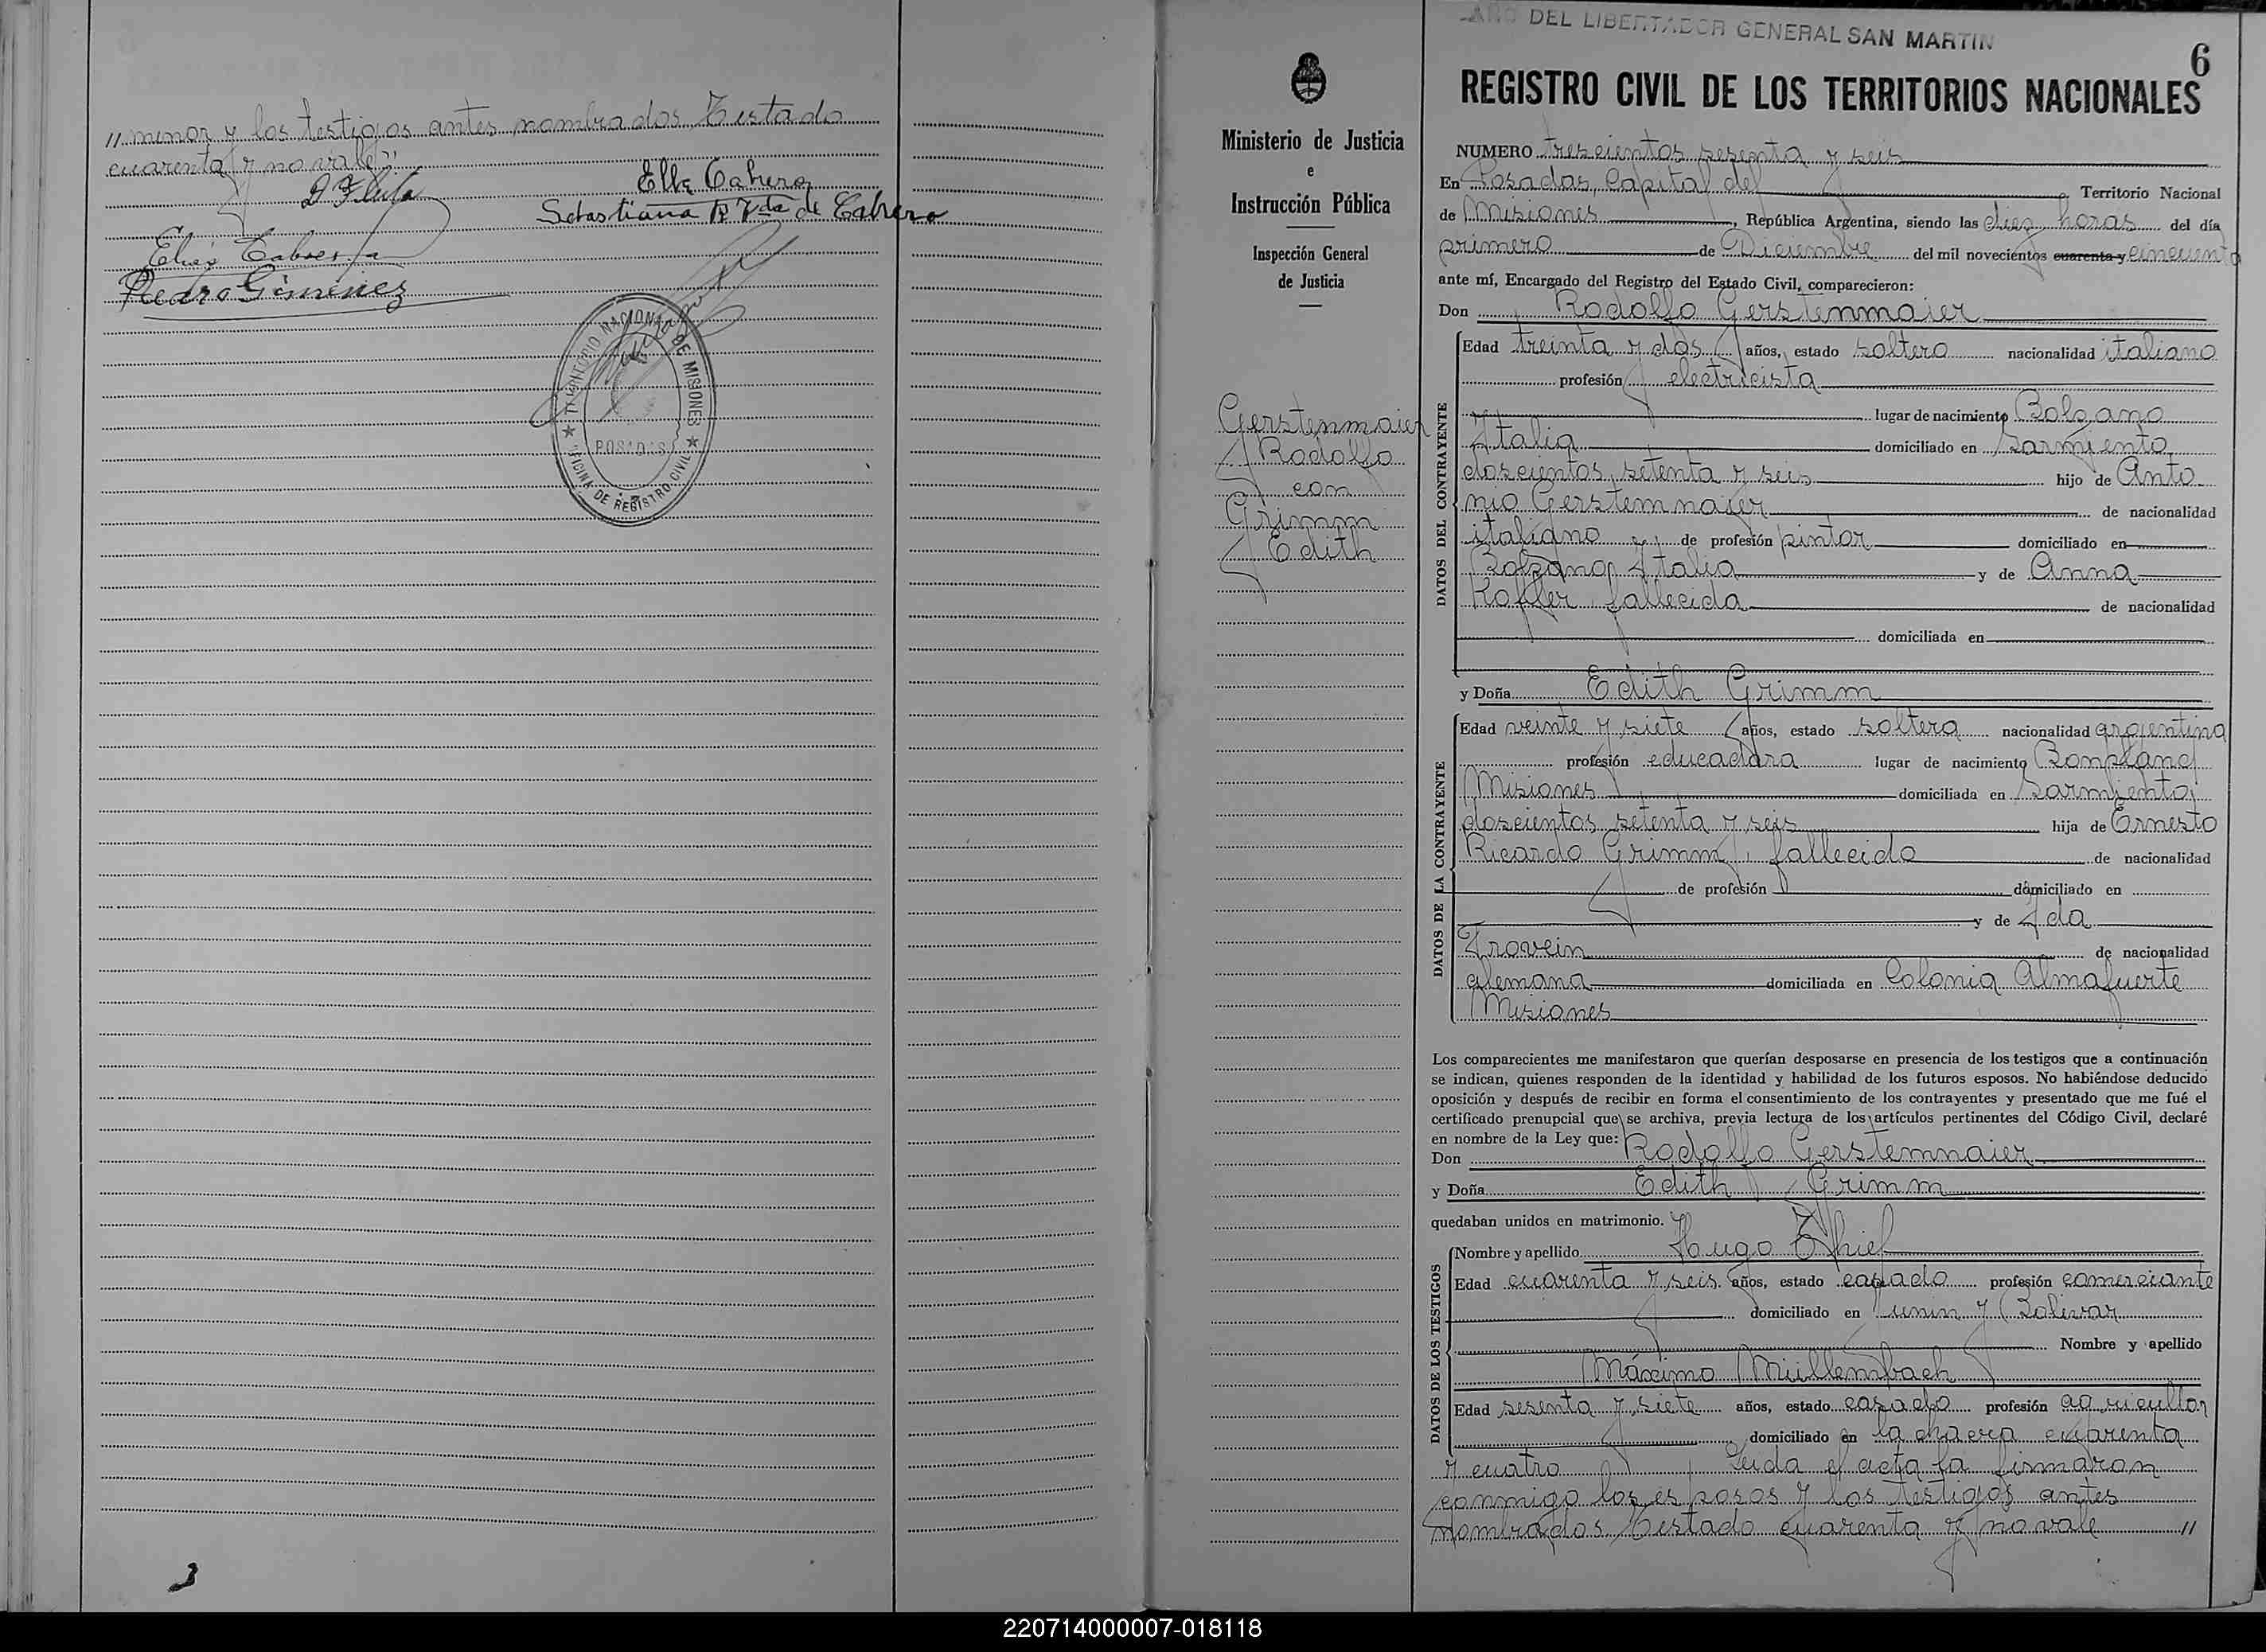 //minor y los testigos antes nombrados Testado
cuarenta y no vale"
Elba Cabrera
Sebastiana R Vda de Cabrera
Elias Cabrera
Pedro Gimenez
TERRITORIO NACIONAL DE MISIONES
POSADAS
OFICINA DE REGISTRO CIVIL
3
Ministerio de Justicia
e
Instrucción Pública
Inspección General
de Justicia
Gerstenmaier
Rodolfo
con
Grimm
Edith
AÑO DEL LIBERTADOR GENERAL SAN MARTIN
6
REGISTRO CIVIL DE LOS TERRITORIOS NACIONALES
NUMERO trescientos sesenta y seis
En Posadas, Capital del Territorio Nacional
de Misiones, República Argentina, siendo las diez horas del día
primero de Diciembre del mil novecientos cuarenta y cincuenta
ante mí, Encargado del Registro del Estado Civil, comparecieron:
Don Rodolfo Gerstenmaier
DATOS DEL CONTRAYENTE
Edad treinta y dos años, estado soltero nacionalidad italiano
profesión electricista
lugar de nacimiento Bolzano
Italia domiciliado en Sarmiento
doscientos setenta y seis hijo de Anto
nio Gerstemnaier de nacionalidad
italiano de profesión pintor domiciliado en
Bolzano, Italia y de Anna
Kofler, fallecida de nacionalidad
domiciliada en
y Doña Edith Grimm
DATOS DE LA CONTRAYENTE
Edad veinte y siete años, estado soltera nacionalidad argentina
profesión educadora lugar de nacimiento Bonpland
Misiones domiciliada en Sarmiento
doscientos setenta y seis hija de Ernesto
Ricardo Grimm, fallecido de nacionalidad
de profesión domiciliado en
y de Ida
Frowein de nacionalidad
alemana domiciliada en Colonia Almafuerte
Misiones
Los comparecientes me manifestaron que querían desposarse en presencia de los testigos que a continuación
se indican, quienes responden de la identidad y habilidad de los futuros esposos. No habiéndose deducido
oposición y después de recibir en forma el consentimiento de los contrayentes y presentado que me fué el
certificado prenupcial que se archiva, previa lectura de los artículos pertinentes del Código Civil, declaré
en nombre de la Ley que:
Don Rodolfo Gerstemnaier
y Doña Edith Grimm
quedaban unidos en matrimonio.
DATOS DE LOS TESTIGOS
Nombre y apellido Hugo Thiel
Edad cuarenta y seis años, estado casado profesión comerciante
domiciliado en Junin y Bolivar
Nombre y apellido
Máximo Müllembach
Edad sesenta y siete años, estado casado profesión agricultor
domiciliado en la chacra cuarenta
y cuatro Leida el acta la firmaron
conmigo los esposos y los testigos antes
nombrados Testado cuarenta y no vale //
220714000007-018118